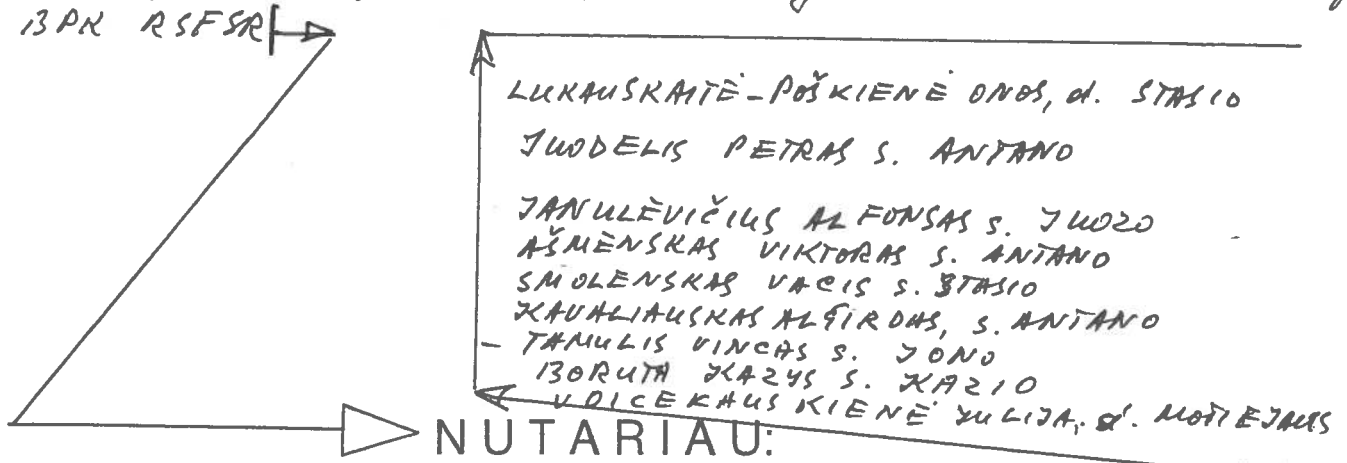 BPK RSFSR
LUKAUSKAITĖ-POŠKIENĖ ONOS, d. STASIO
JUODELIS PETRAS s. ANTANO
JANULĖVIČIUS ALFONSAS s. JUOZO
AŠMĖNSKAS VIKTORAS s. ANTANO
SMOLENSKAS VACIS s. STASIO
KAVALIAUSKAS ALGIRDAS, s. ANTANO
– TAMULIS VINCAS s. JONO
BORUTA KAZYS s. KAZIO
VOICEKAUSKIENĖ JULIJA, d. MOTIEJAUS
NUTARIAU: